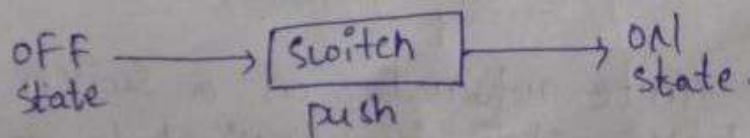 OFF
state
switch
push
ON
state.